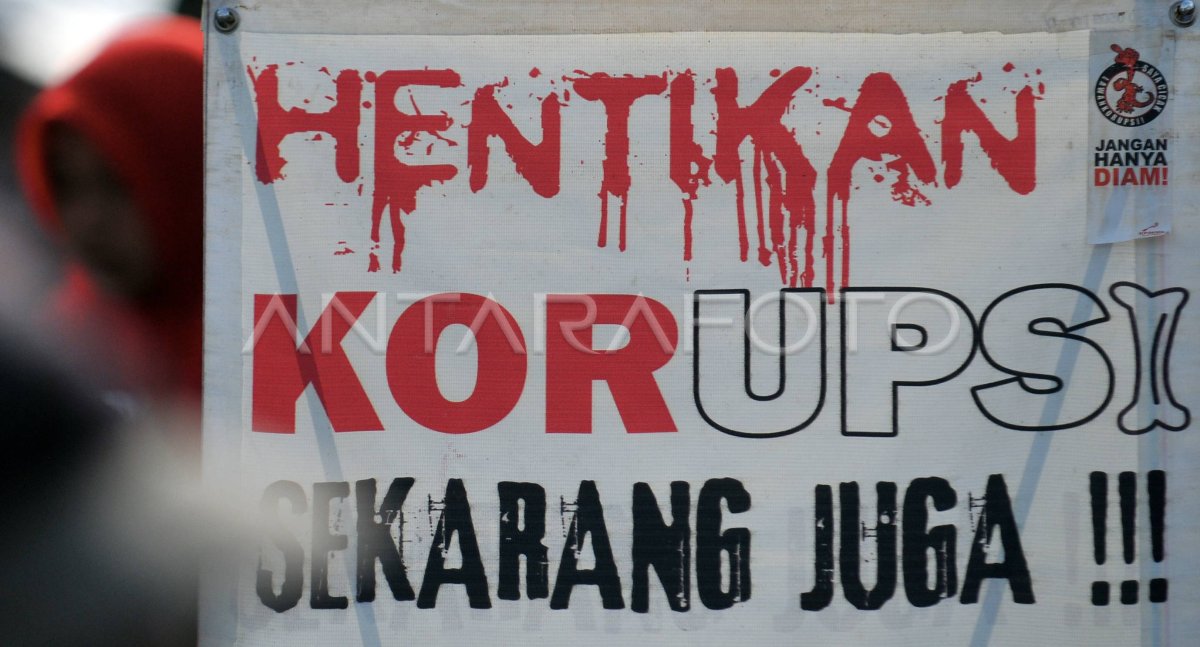 HENTIKAN
KORUPSI
SEKARANG JUGA !!!
SAYA TIDAK
JANGAN
HANYA
DIAM!
ANTARAFOTO